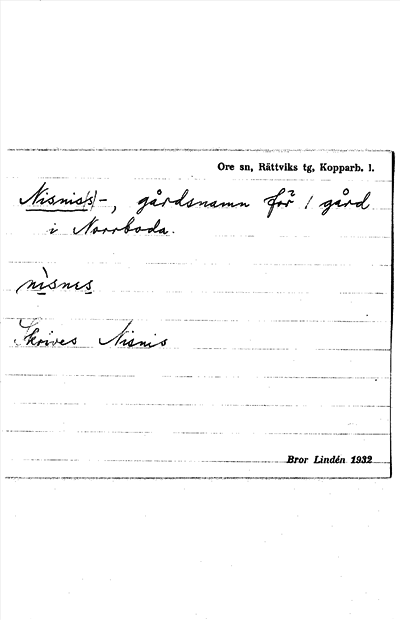 Ore sn, Rättviks tg, Kopparb. l.
Nisnis(s)-, gårdsnamn för 1 gård
i Norrboda.
nìsnıs
Skrives Nisnis
Bror Lindén 1932